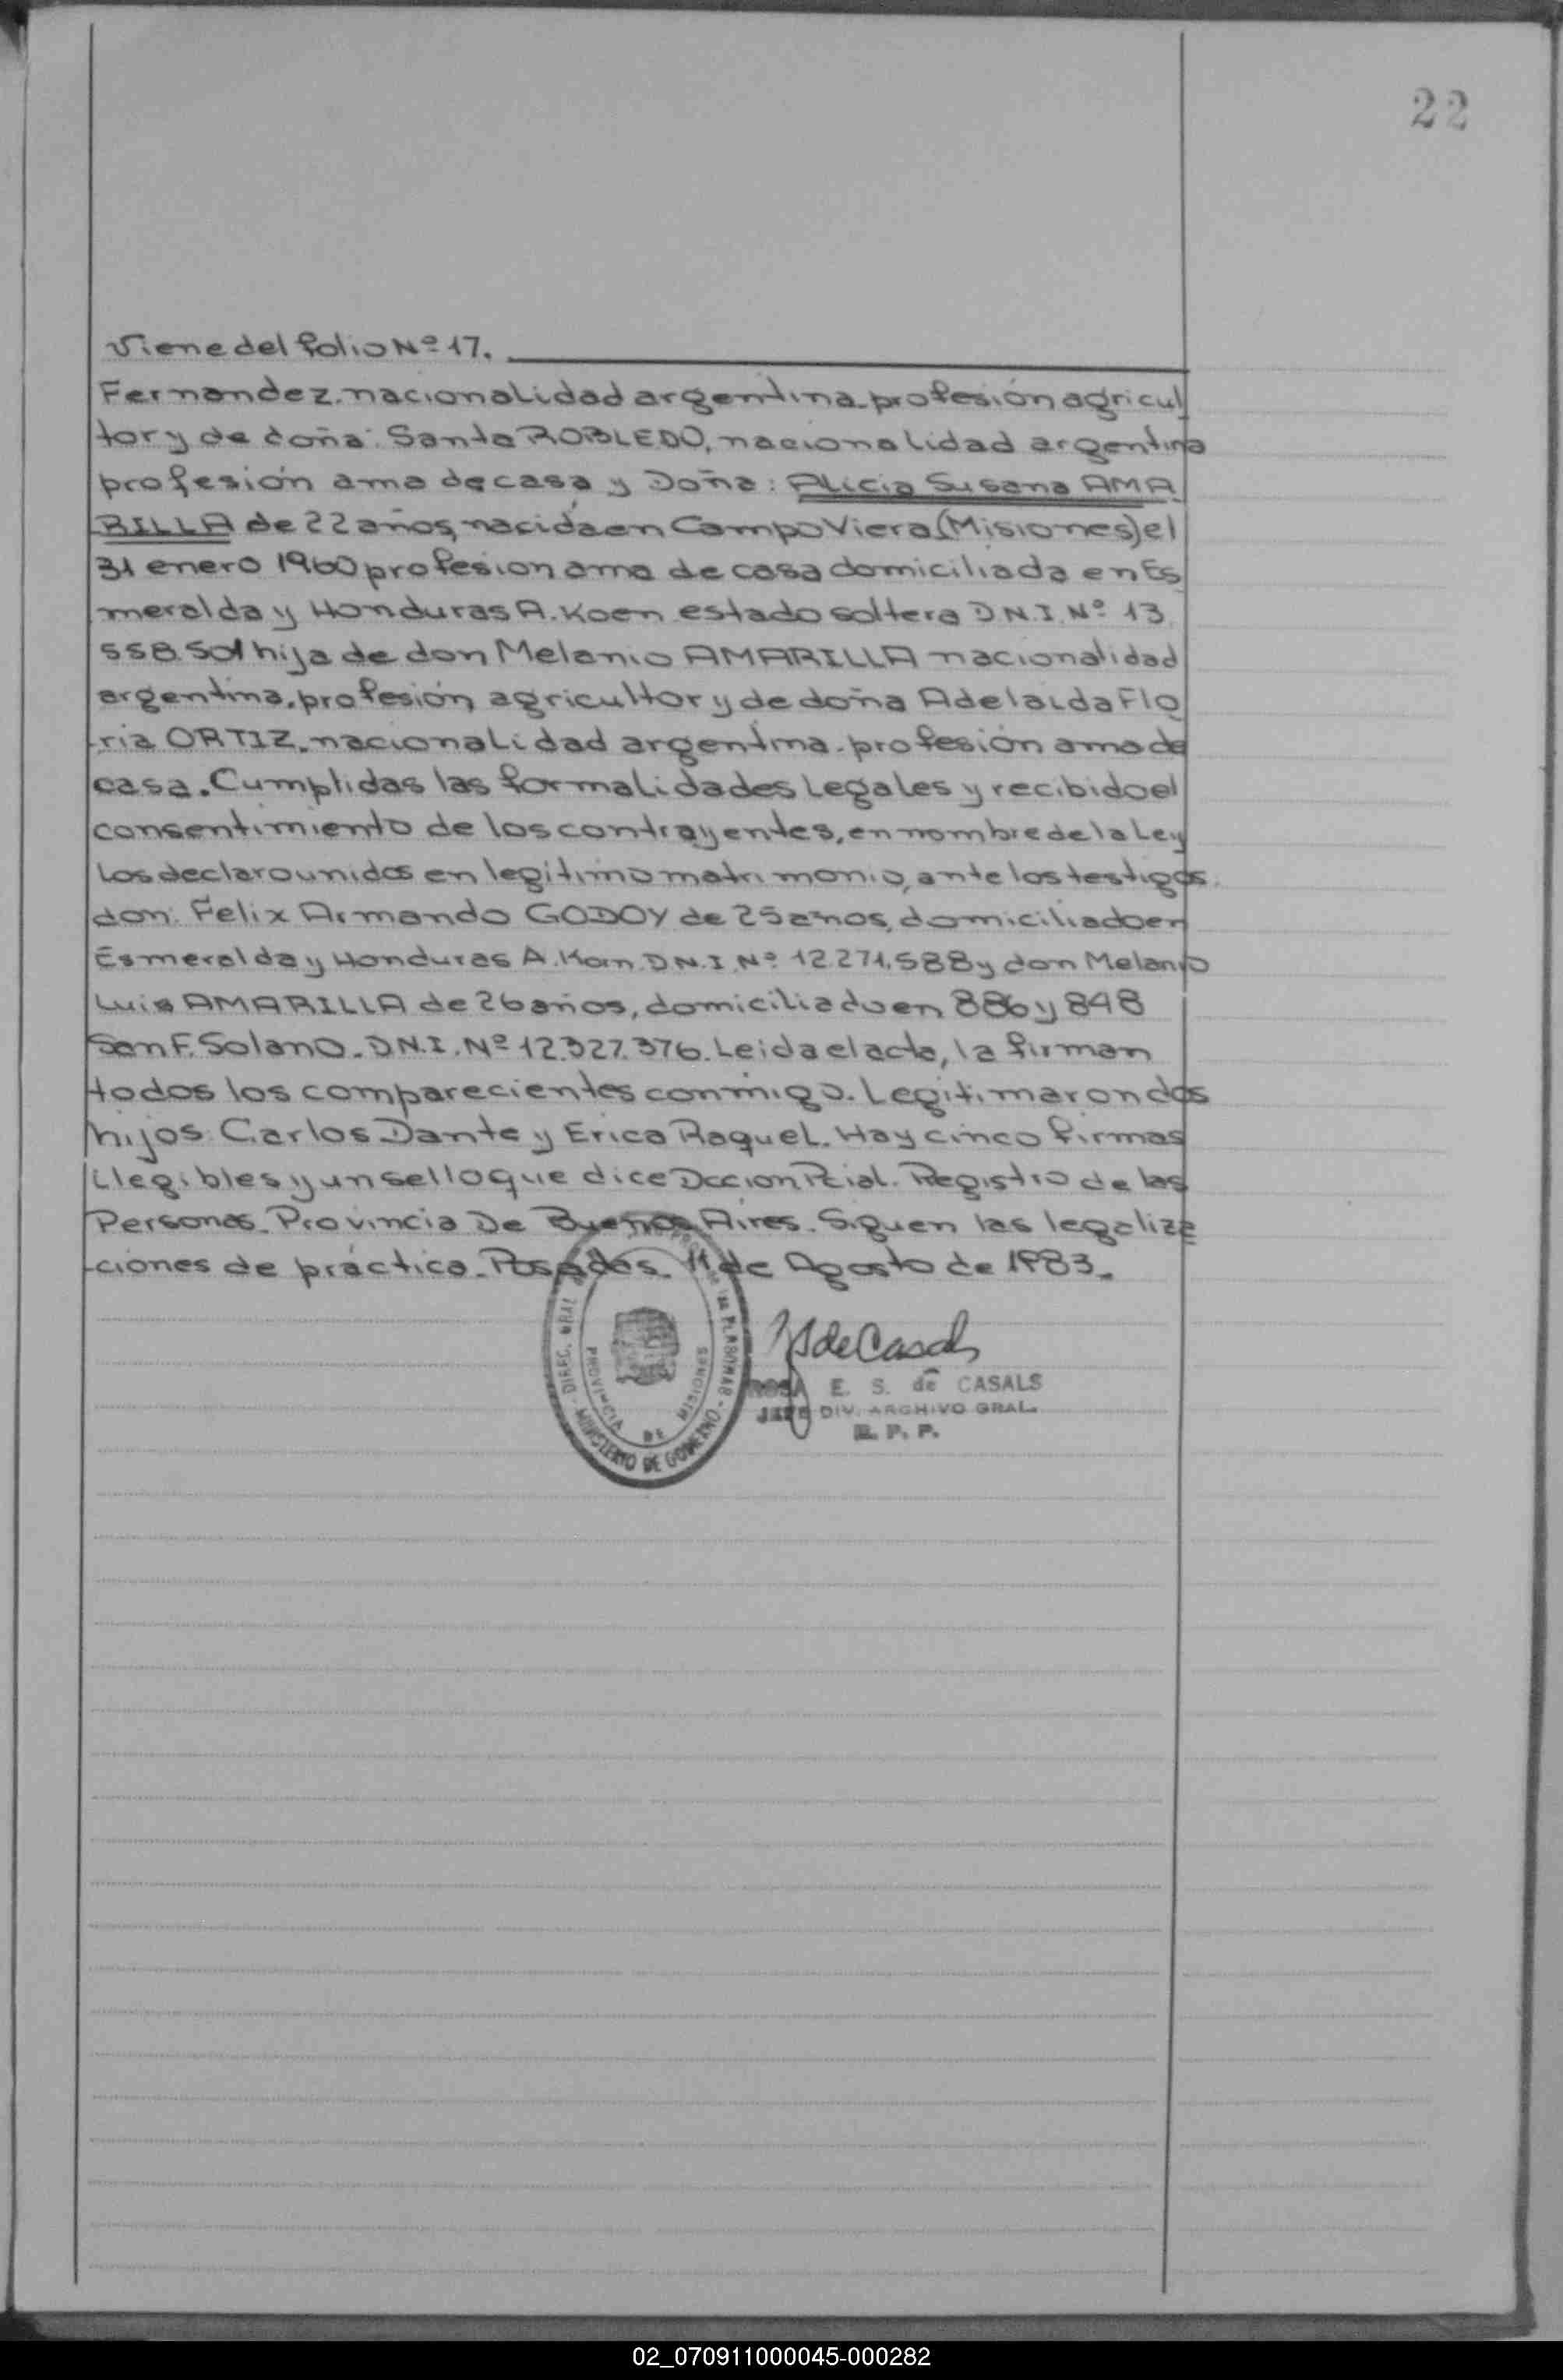 22
Viene del folio Nº 17.
Fernandez. nacionalidad argentina. profesión agricul
tor y de doña: Santa ROBLEDO, nacionalidad argentina
profesión ama de casa y Doña: Alicia Susana AMA
RILLA de 22 años, nacida en Campo Viera (Misiones) el
31 enero 1960 profesion ama de casa domiciliada en Es
meralda y Honduras A. Koen estado soltera D.N.I. Nº 13.
558.501 hija de don Melanio AMARILLA nacionalidad
argentina, profesión agricultor y de doña Adelaida Flo
ria ORTIZ. nacionalidad argentina. profesión ama de
casa. Cumplidas las formalidades Legales y recibido el
consentimiento de los contrayentes, en nombre de la Ley
Los declaro unidos en legítimo matrimonio, ante los testigos.
don: Felix Armando GODOY de 25 años, domiciliado en
Esmeralda y Honduras A. Korn D.N.I. Nº 12.271.588 y don Melanio
Luis AMARILLA de 26 años, domiciliado en 886 y 848
San F. Solano. D.N.I. Nº 12.327.376. Leida el acta, la firman
todos los comparecientes conmigo. Legitimaron dos
hijos: Carlos Dante y Erica Raquel. Hay cinco firmas
ilegibles y un sello que dice Dccion Pcial. Registro de las
Personas. Provincia De Buenos Aires. Siguen las legaliza
ciones de práctica. Posadas. 11 de Agosto de 1983.
DIREC. GRAL
de las PERSONAS
MINISTERIO DE GOBIERNO
PROVINCIA DE MISIONES
de Casals
ROSA E. S. de CASALS
JEFE DIV. ARCHIVO GRAL.
R. P. P.
02_070911000045-000282